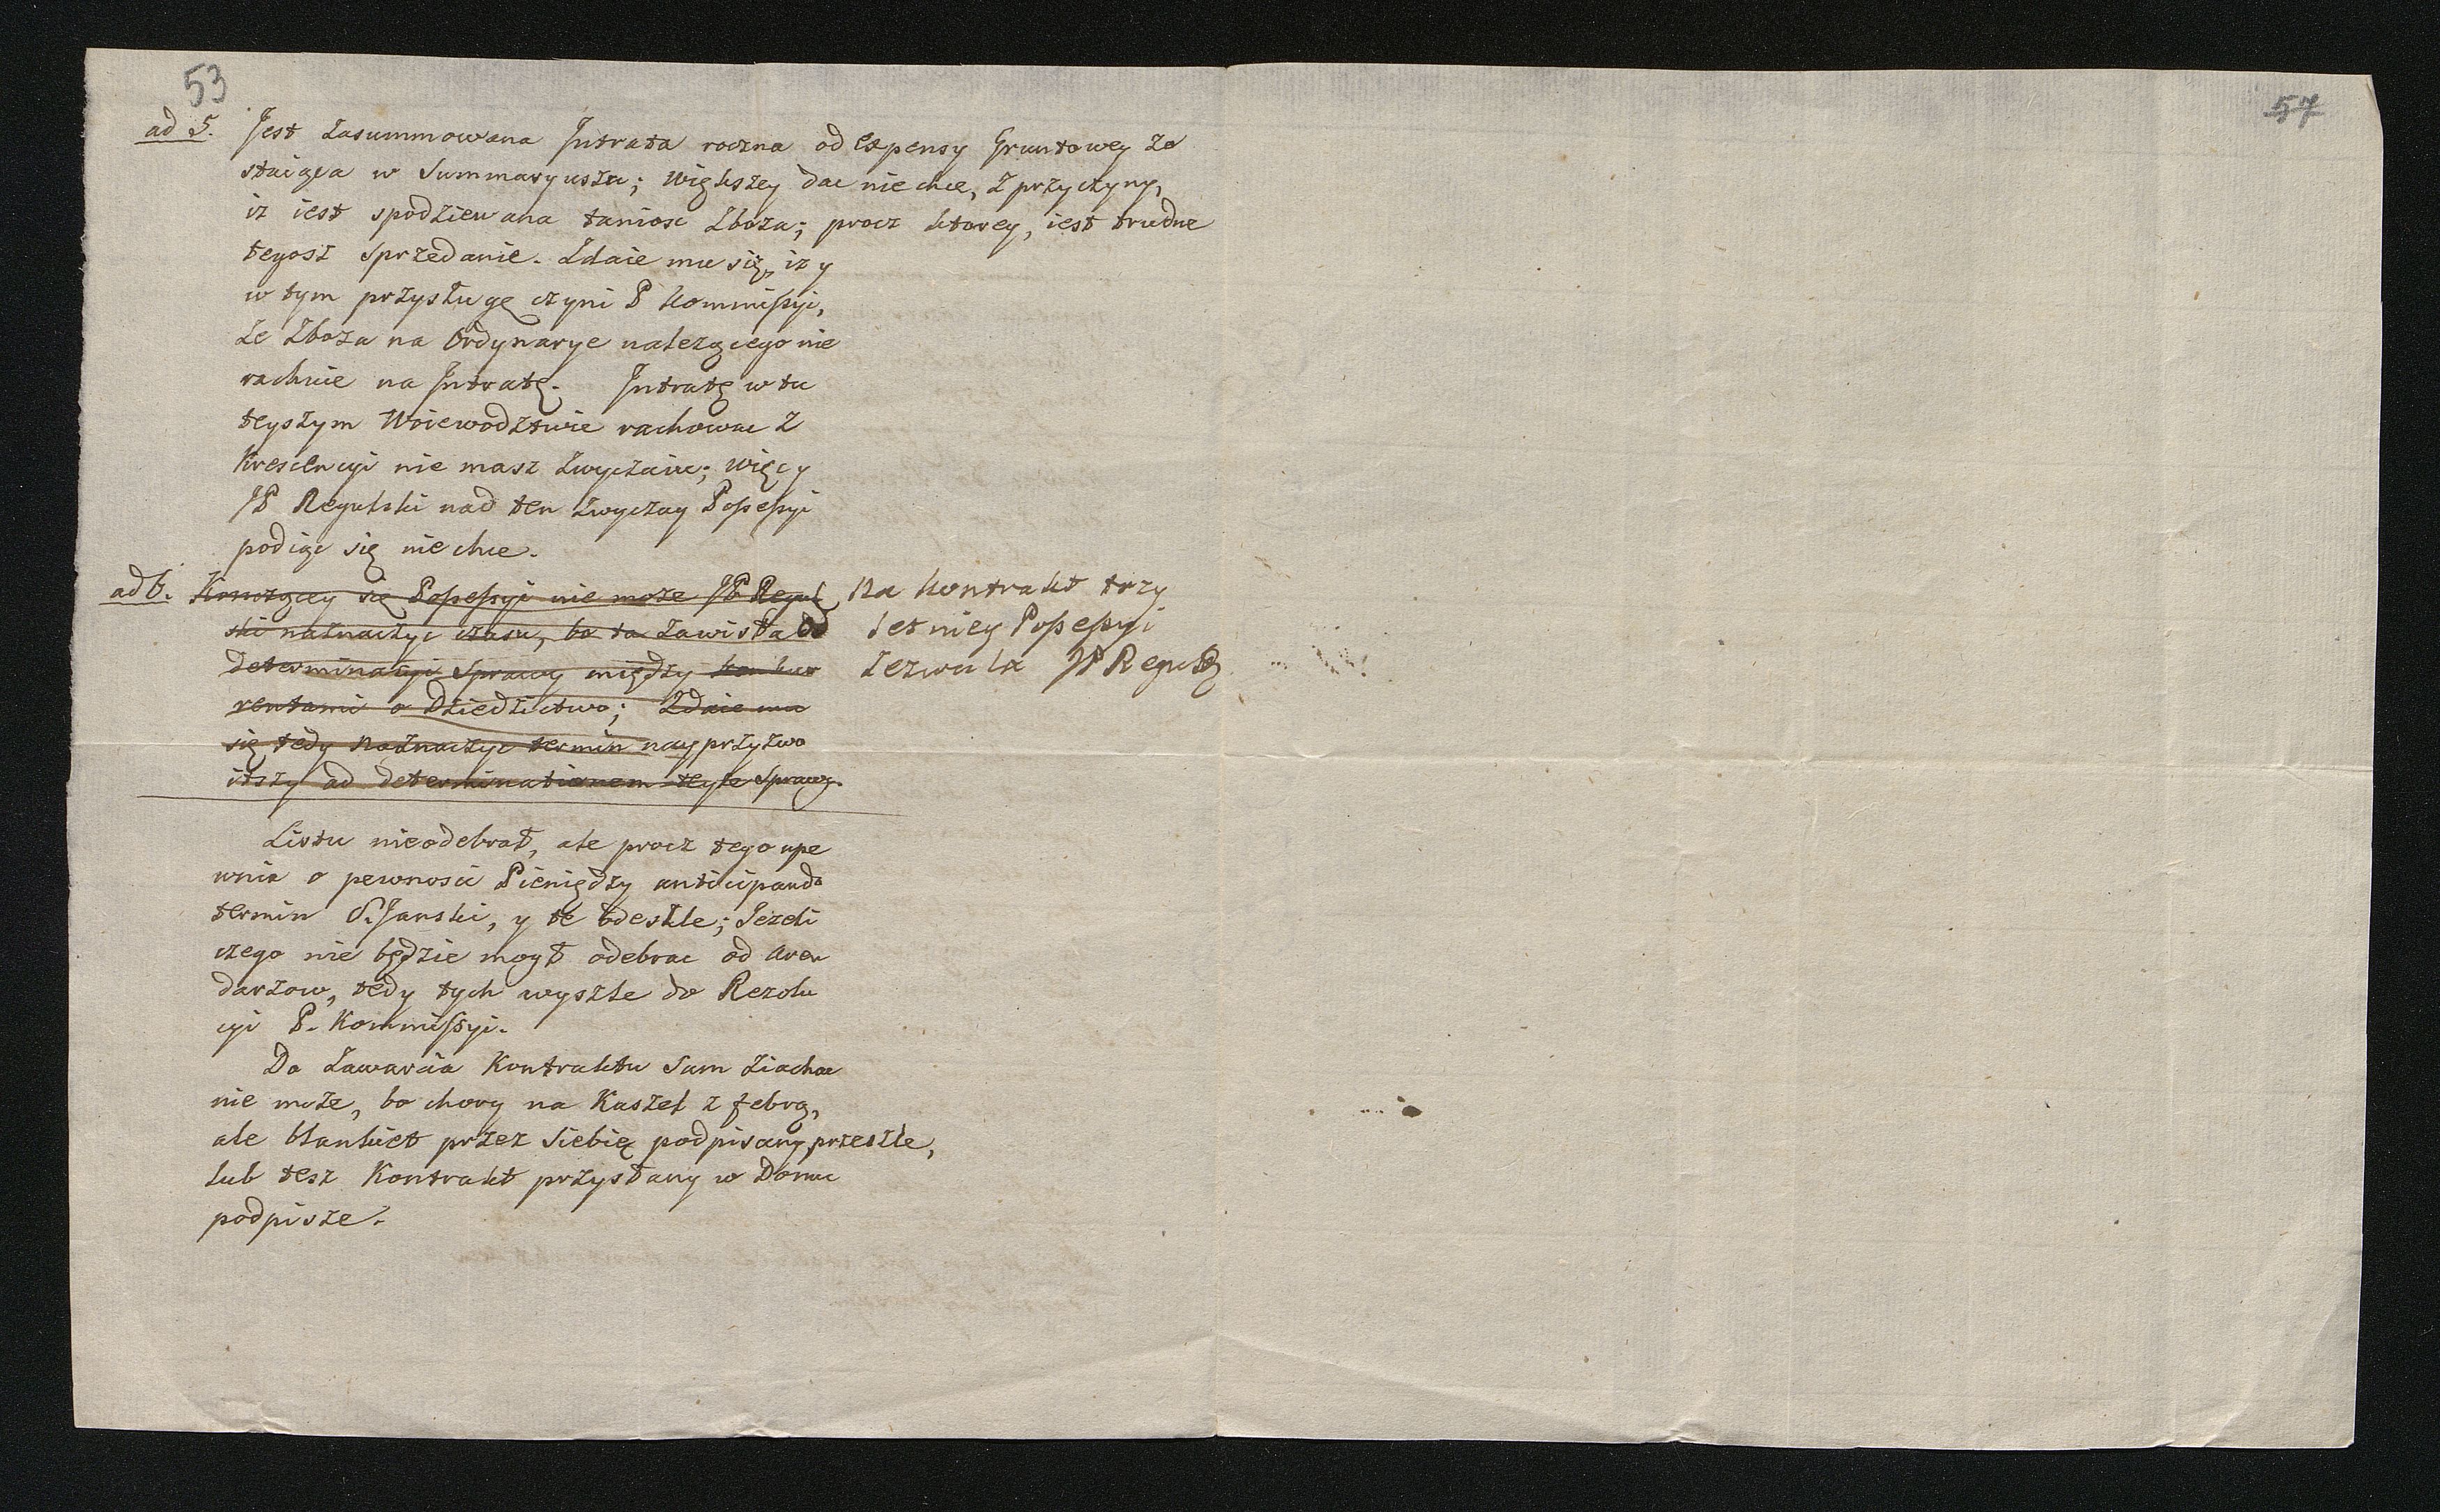 53
57
ad 5. Jest zasummowana Intrata roczna od expensy Gruntowey zo
staiąca w Summaryuszu; większey dac nie chce, z przyczyny,
iz iest spodziewana taniosc zboza; procz ktorey, iest trudne
tegosz sprzedanie. Zdaie mu się, iz y
w tym przysługę czyni P Kommissyi,
ze zboza na Ordynarye nalezącego nie
rachuie na Intratę. Intratę w tu
teyszym Woiewodztwie rachowac z
Krescencyi nie masz zwyczaiu; więc y
JP Regulski nad ten zwyczay Possessyi
podiąc się nie chce.
ad 6. Konczącey się Possessyi nie moze JP Regul
ski naznaczyc czasu, bo ta zawisła od
determinacyi Sprawy między konkur
rentami o Dziedzictwo; Zdaie mu
się tedy naznaczyc termin nayprzyzwo
itszy ad determinationem teyze Sprawy.
Na kontrakt trzy
letniey Possessyi
zezwala JP Regulski
Listu nieodebrał, ale procz tego upe
wnia o pewnosci Pieniędzy anticipando
termin S. Janski, y te odeszle; Jezeli
czego nie będzie mogł odebrac od Aren
darzow, tedy tych wyszle do Rezolu
cyi P. Kommissyi.
Do Zawarcia Kontraktu Sam ziachac
nie moze, bo chory na Kaszel z febrą,
ale blankiet przez Siebie podpisany przeszle,
lub tesz Kontrakt przysłany w Domu
podpisze.